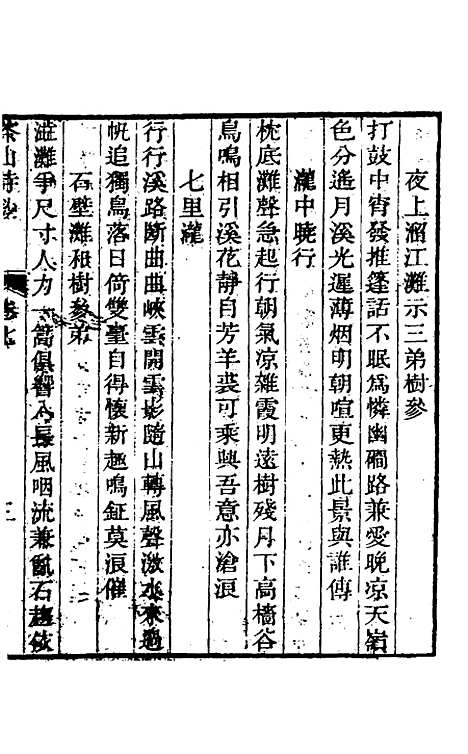 夜上溜江灘示三弟樹參
打鼓中宵發推篷話不眠爲憐幽磵路兼愛晚凉天嶺
色分遙月溪光遲薄烟明朝喧更熱此景與誰傳
瀧中曉行
枕底灘聲急起行朝氣凉雜霞明遠樹殘月下高檣谷
鳥鳴相引溪花靜自芳羊裘可乘興吾意亦滄浪
七里瀧
行行溪路斷曲曲峽雲開雲影隨山轉風聲激水來過
帆追獨鳥落日倚雙臺自得懷新趣鳴鉦莫浪催
石壁灘和樹參弟
湍灘爭尺寸人力一篙俱響入長風咽流兼亂石趨欲
茶山詩鈔 卷七 三